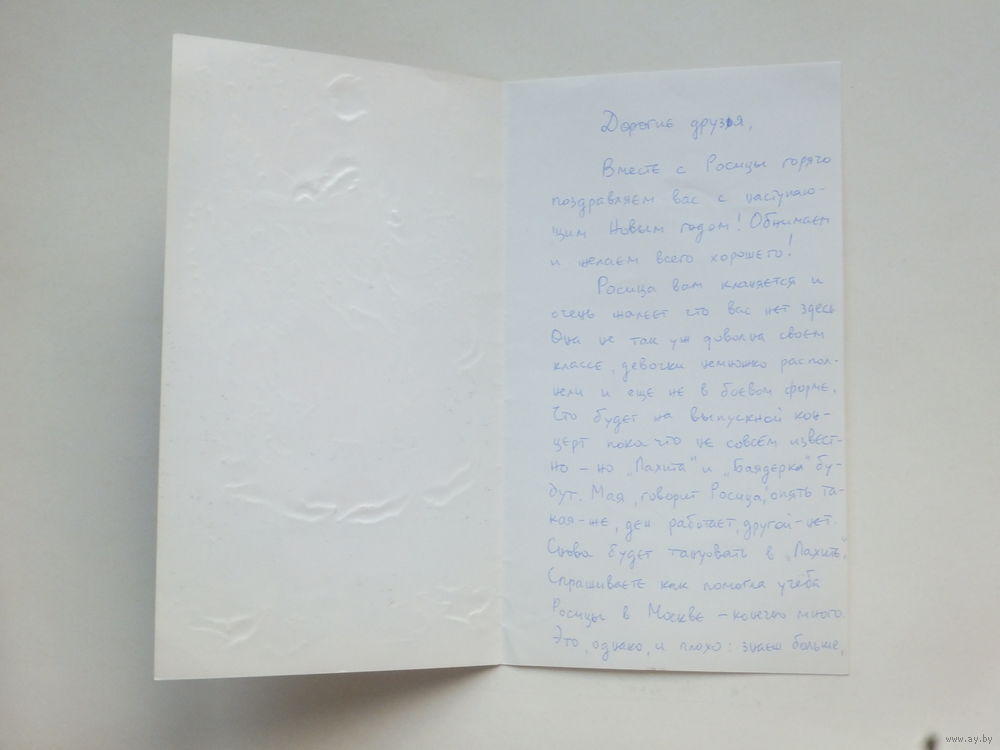 Дорогие друзя,
Вместе с Росицы горячо
поздравляем вас с наступаю-
щим Новым годом! Обнимаем
и желаем всего хорошего!
Росица вам кланяется и
очень жалеет что вас нет здесь
Она не так уж доволна своем
классе, девочки немножко распол-
нели и еще не в боевом форме.
Что будет на выпускной кон-
церт пока что не совсем извест-
но – но „Пахита" и „Баядерка" бу-
дут. Мая, говорит Росица, опять та-
кая-же, ден работает, другой-нет.
Снова будет танцовать в „Пахите".
Спрашиваете как помогла учёба
Росицы в Москве – конечно много.
Это, однако, и плохо: знаеш больше,
www.ay.by